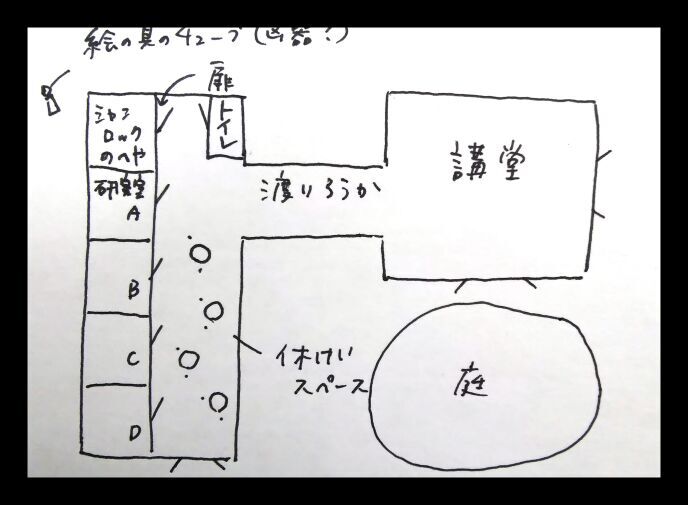 絵の具のチューブ(凶器?)
扉
トイレ
ロック
のへや
研究室
A
B
C
D
渡りろうか
講堂
休けい
スペース
庭